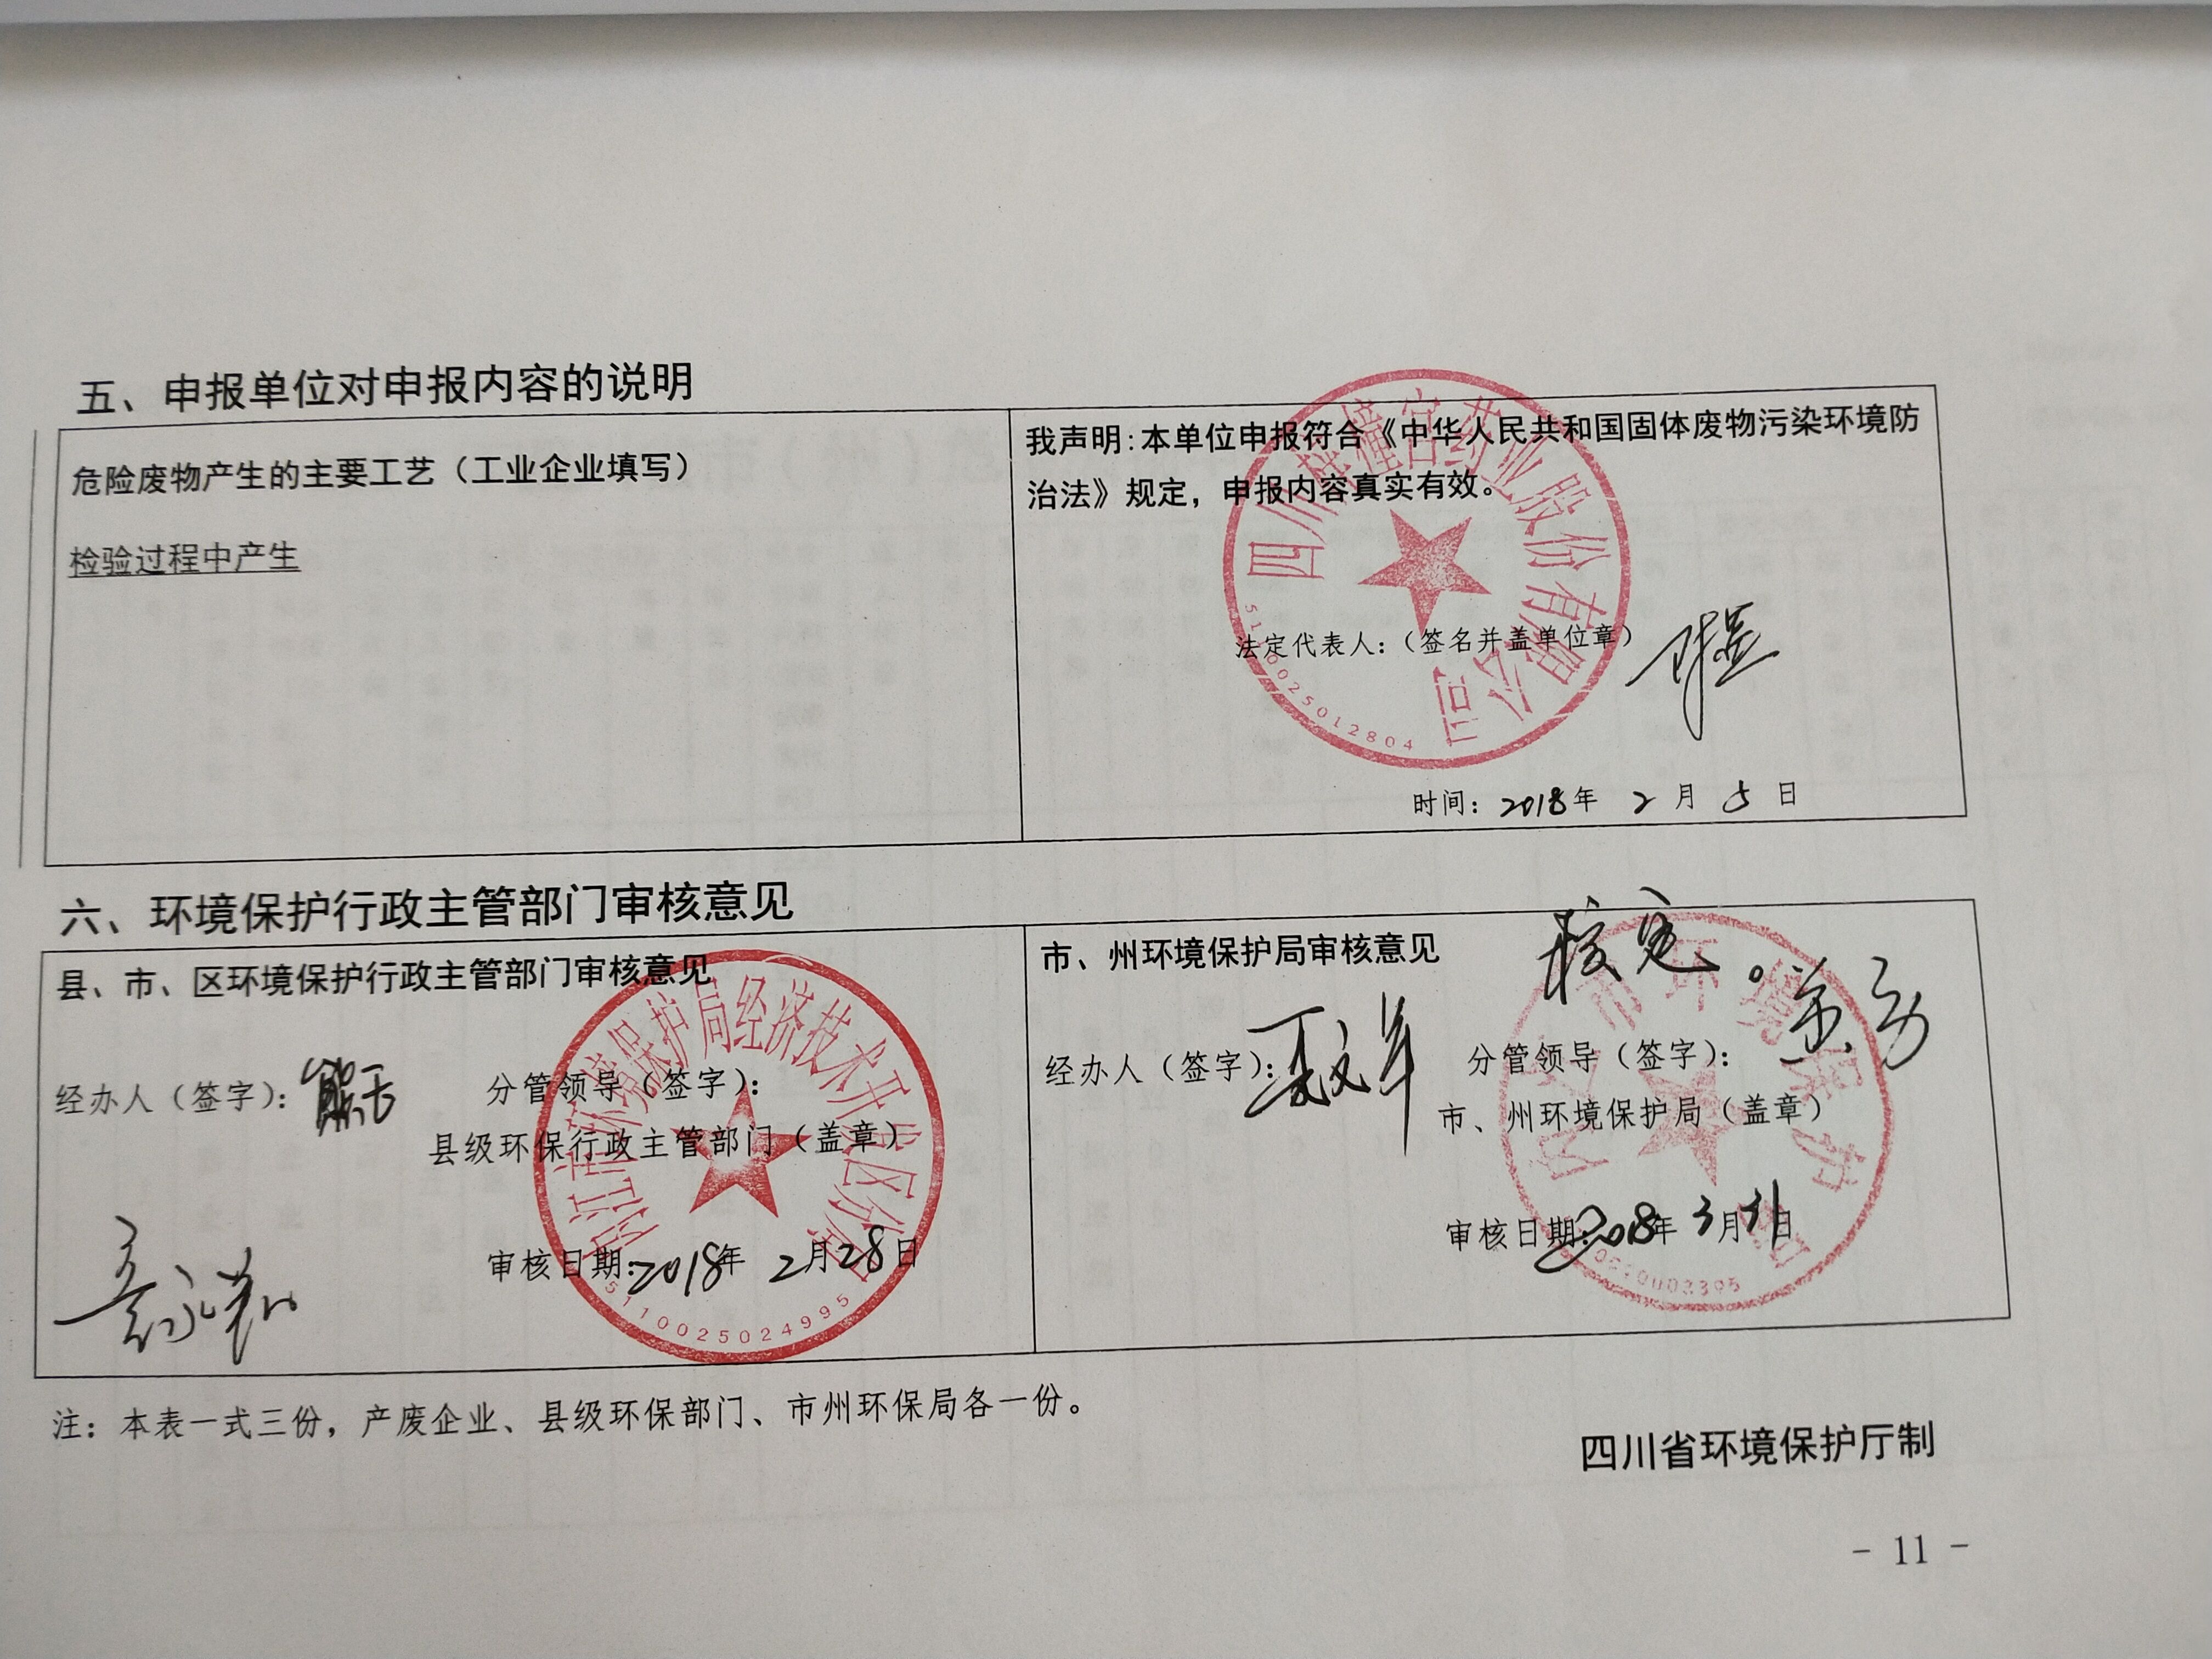 五、申报单位对申报内容的说明
危险废物产生的主要工艺（工业企业填写）
检验过程中产生
我声明:本单位申报符合《中华人民共和国固体废物污染环境防
治法》规定，申报内容真实有效。
四川梓橦宫药业股份有限公司
法定代表人：（签名并盖单位章）
时间：2018年 2 月 5 日
六、环境保护行政主管部门审核意见
县、市、区环境保护行政主管部门审核意见
经办人（签字）：
分管领导（签字）：
县级环保行政主管部门（盖章）
内江市环境保护局经济技术开发区分局
审核日期：2018年 2月28日
5110025024995
市、州环境保护局审核意见
核定。
经办人（签字）：
分管领导（签字）：
市、州环境保护局（盖章）
内江市环境保护局
审核日期：2018年 3月 日
注：本表一式三份，产废企业、县级环保部门、市州环保局各一份。
四川省环境保护厅制
- 11 -